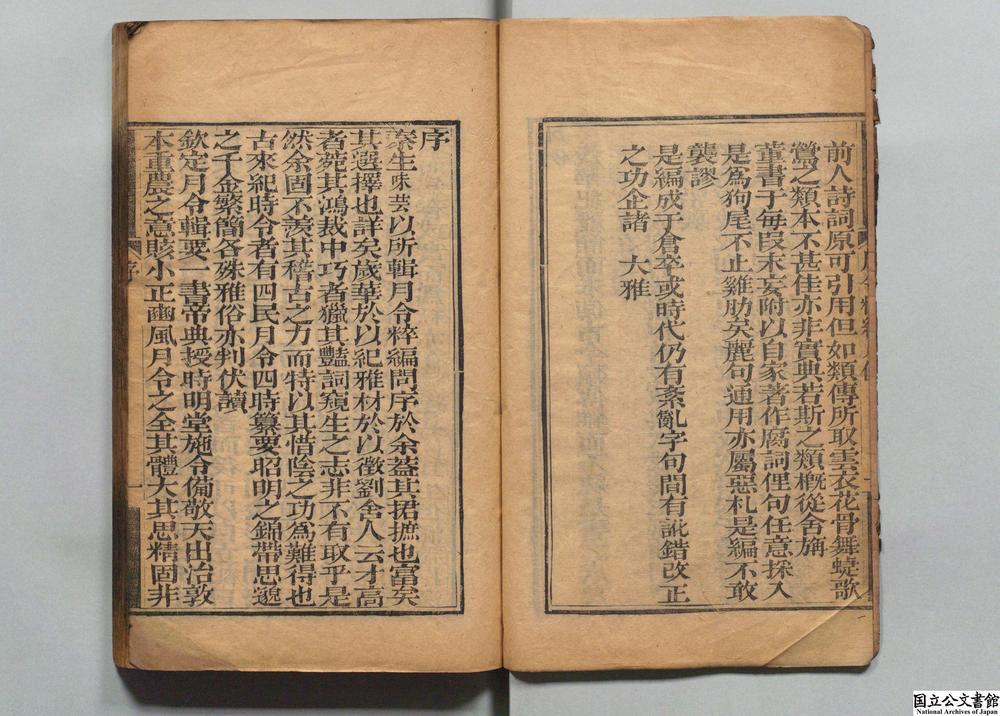 前人詩詞原可引用但如類傳所取雲衣花骨舞蜨歌
鶯之類本不甚佳亦非實典若斯之類概從舍旃
董書于每段末妄附以自家著作腐詞俚句任意採入
是為狗尾不止雞肋矣麗句通用亦屬惡札是編不敢
襲謬
是編成于倉卒或時代仍有紊亂字句間有訛錯改正
之功企諸　大雅
序
秦生味芸以所輯月令粹編問序於余蓋其捃摭也富矣
其選擇也詳矣歲華於以紀雅材於以徵劉舍人云才高
者菀其鴻裁中巧者獵其豔詞窺生之志非不有取乎是
然余固不羨其稽古之力而特以其惜陰之功為難得也
古來紀時令者有四民月令四時纂要昭明之錦帶思邈
之千金繁簡各殊雅俗亦判伏讀
欽定月令輯要一書帝典授時明堂施令備敬天出治敦
本重農之意賅小正豳風月令之全其體大其思精固非
序
一
国立公文書館
National Archives of Japan